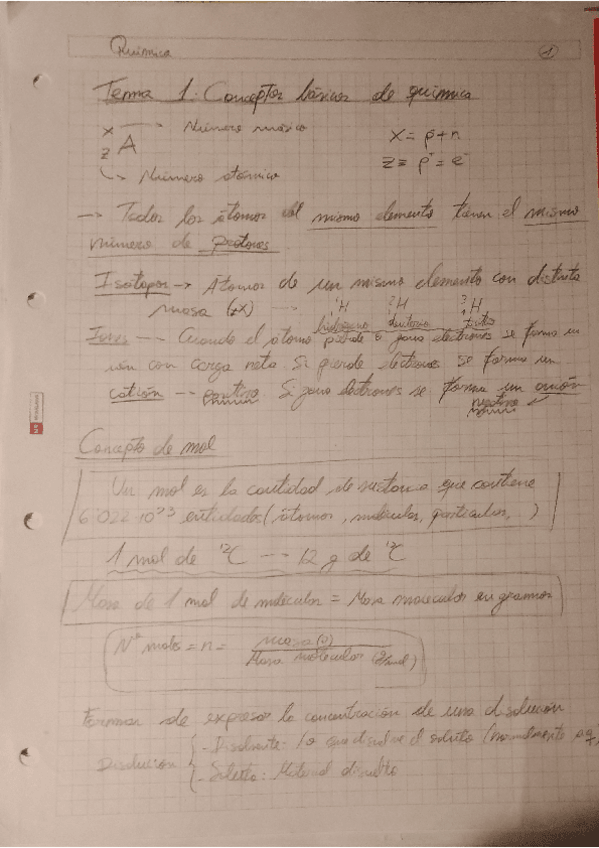 Química 1
Tema 1: Conceptos básicos de química
x → Número másico x = p + n
z A z = p⁺ = e⁻
↳ Número atómico
→ Todos los átomos del mismo elemento tienen el mismo
número de protones
Isótopos → Átomos de un mismo elemento con distinta
masa (≠X) → ¹H ²H ³H
hidrógeno deuterio tritio
Iones -- Cuando el átomo pierde o gana electrones se forma un
ión con carga neta. Si pierde electrones se forma un
catión -- positivo Si gana electrones se forma un anión
negativo
Concepto de mol
Un mol es la cantidad de sustancia que contiene
6,022·10²³ entidades (átomos, moléculas, partículas, )
1 mol de ¹²C --- 12 g de ¹²C
Masa de 1 mol de moléculas = Masa molecular en gramos
Nº moles = n = masa (g)
Masa molecular (g/mol)
Formas de expresar la concentración de una disolución
Disolución { - Disolvente: lo que disuelve el soluto (normalmente
- Soluto: Material disuelto